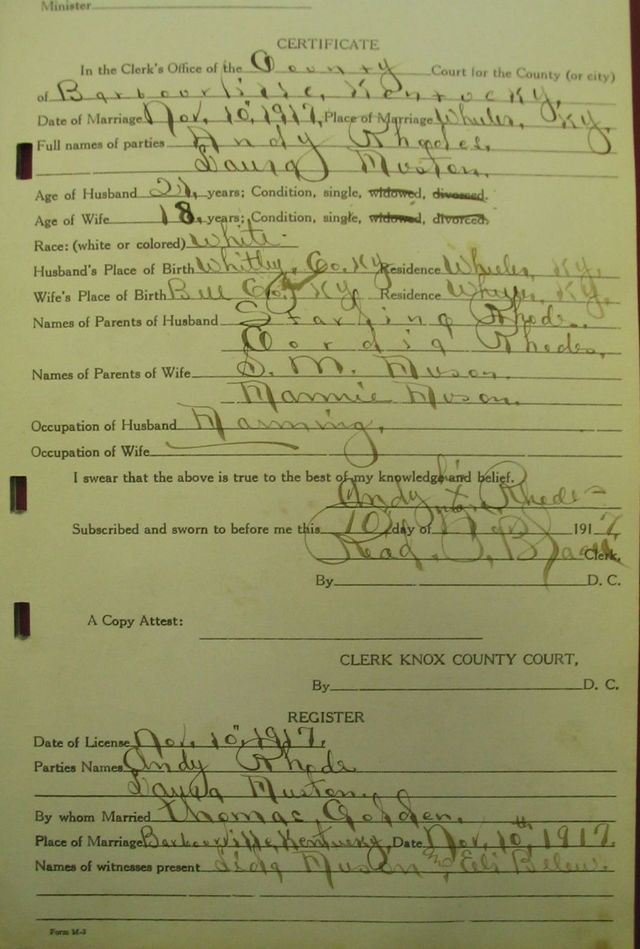 Minister
CERTIFICATE
In the Clerk's Office of the County Court for the County (or city)
of Barbourville, Kentucky,
Date of Marriage Nov. 10, 1917, Place of Marriage Wheeler, Ky.
Full names of parties Andy Rhodes,
Laura Muson.
Age of Husband 21, years; Condition, single, widowed, divorced.
Age of Wife 18, years; Condition, single, widowed, divorced.
Race: (white or colored) White
Husband's Place of Birth Whitley, Co. Ky. Residence Wheeler, Ky.
Wife's Place of Birth Bell Co. Ky. Residence Ky.
Names of Parents of Husband Starling Rhodes.
Rhodes,
Names of Parents of Wife S. M. Muson.
Mammie Muson.
Occupation of Husband
Occupation of Wife
I swear that the above is true to the best of my knowledge and belief.
Andy his x mark Rhodes
Subscribed and sworn to before me this 10 day of Nov 1917
Read P. Black Clerk,
By D. C.
A Copy Attest:
CLERK KNOX COUNTY COURT,
By D. C.
REGISTER
Date of License Nov. 10, 1917.
Parties Names Andy Rhode
Laura Muston.
By whom Married Thomas Golden.
Place of Marriage Barbourville, Kentucky, Date Nov. 10th 1917.
Names of witnesses present Muson & Eli Belew.
Form M-3